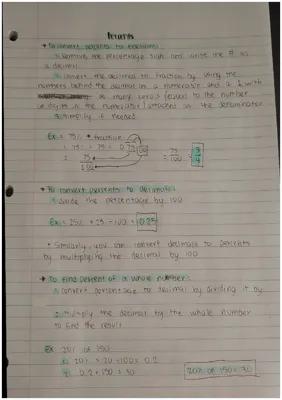 Percents
• To convert percents to fractions:
① Remove the percentage sign and write the # as
a decimal
② convert the decimal to fraction by using the
numbers behind the decimal as a numerator and a 1 with
as many zeros (equal to the number
of digits in the numerator) attached as the denominator
③ simplify if needed
Ex: 75% → fraction
= 75% = 75 = 0.75
= 75
100
= 75
100
= 3
4
• To convert percents to decimals:
① divide the percentage by 100
Ex: 25% → 25 ÷ 100 = 0.25
* Similarly, you can convert decimals to percents
by multiplying the decimal by 100
• To find percent of a whole number:
① convert percentage to decimal by dividing it by
2. multiply the decimal by the whole number
to find the result
Ex 20% of 150
20% = 20 ÷ 100 = 0.2
0.2 × 150 = 30
20% of 150 = 30